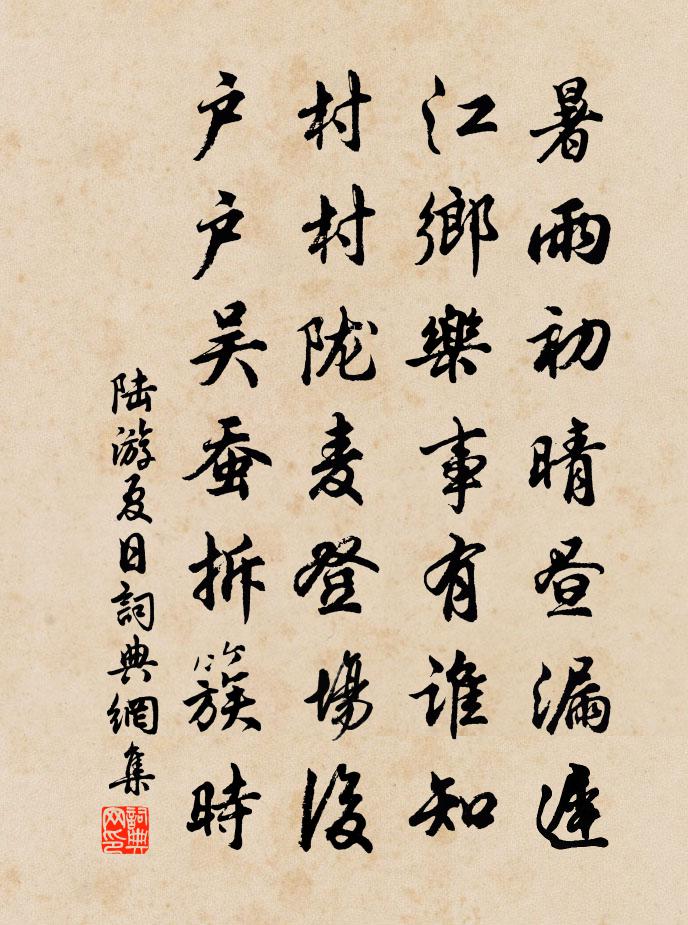 暑雨初晴昼漏遲
江鄉樂事有誰知
村村陇麦登場後
户户吴蚕拆簇時
陆游夏日詞典網集
詞典网印